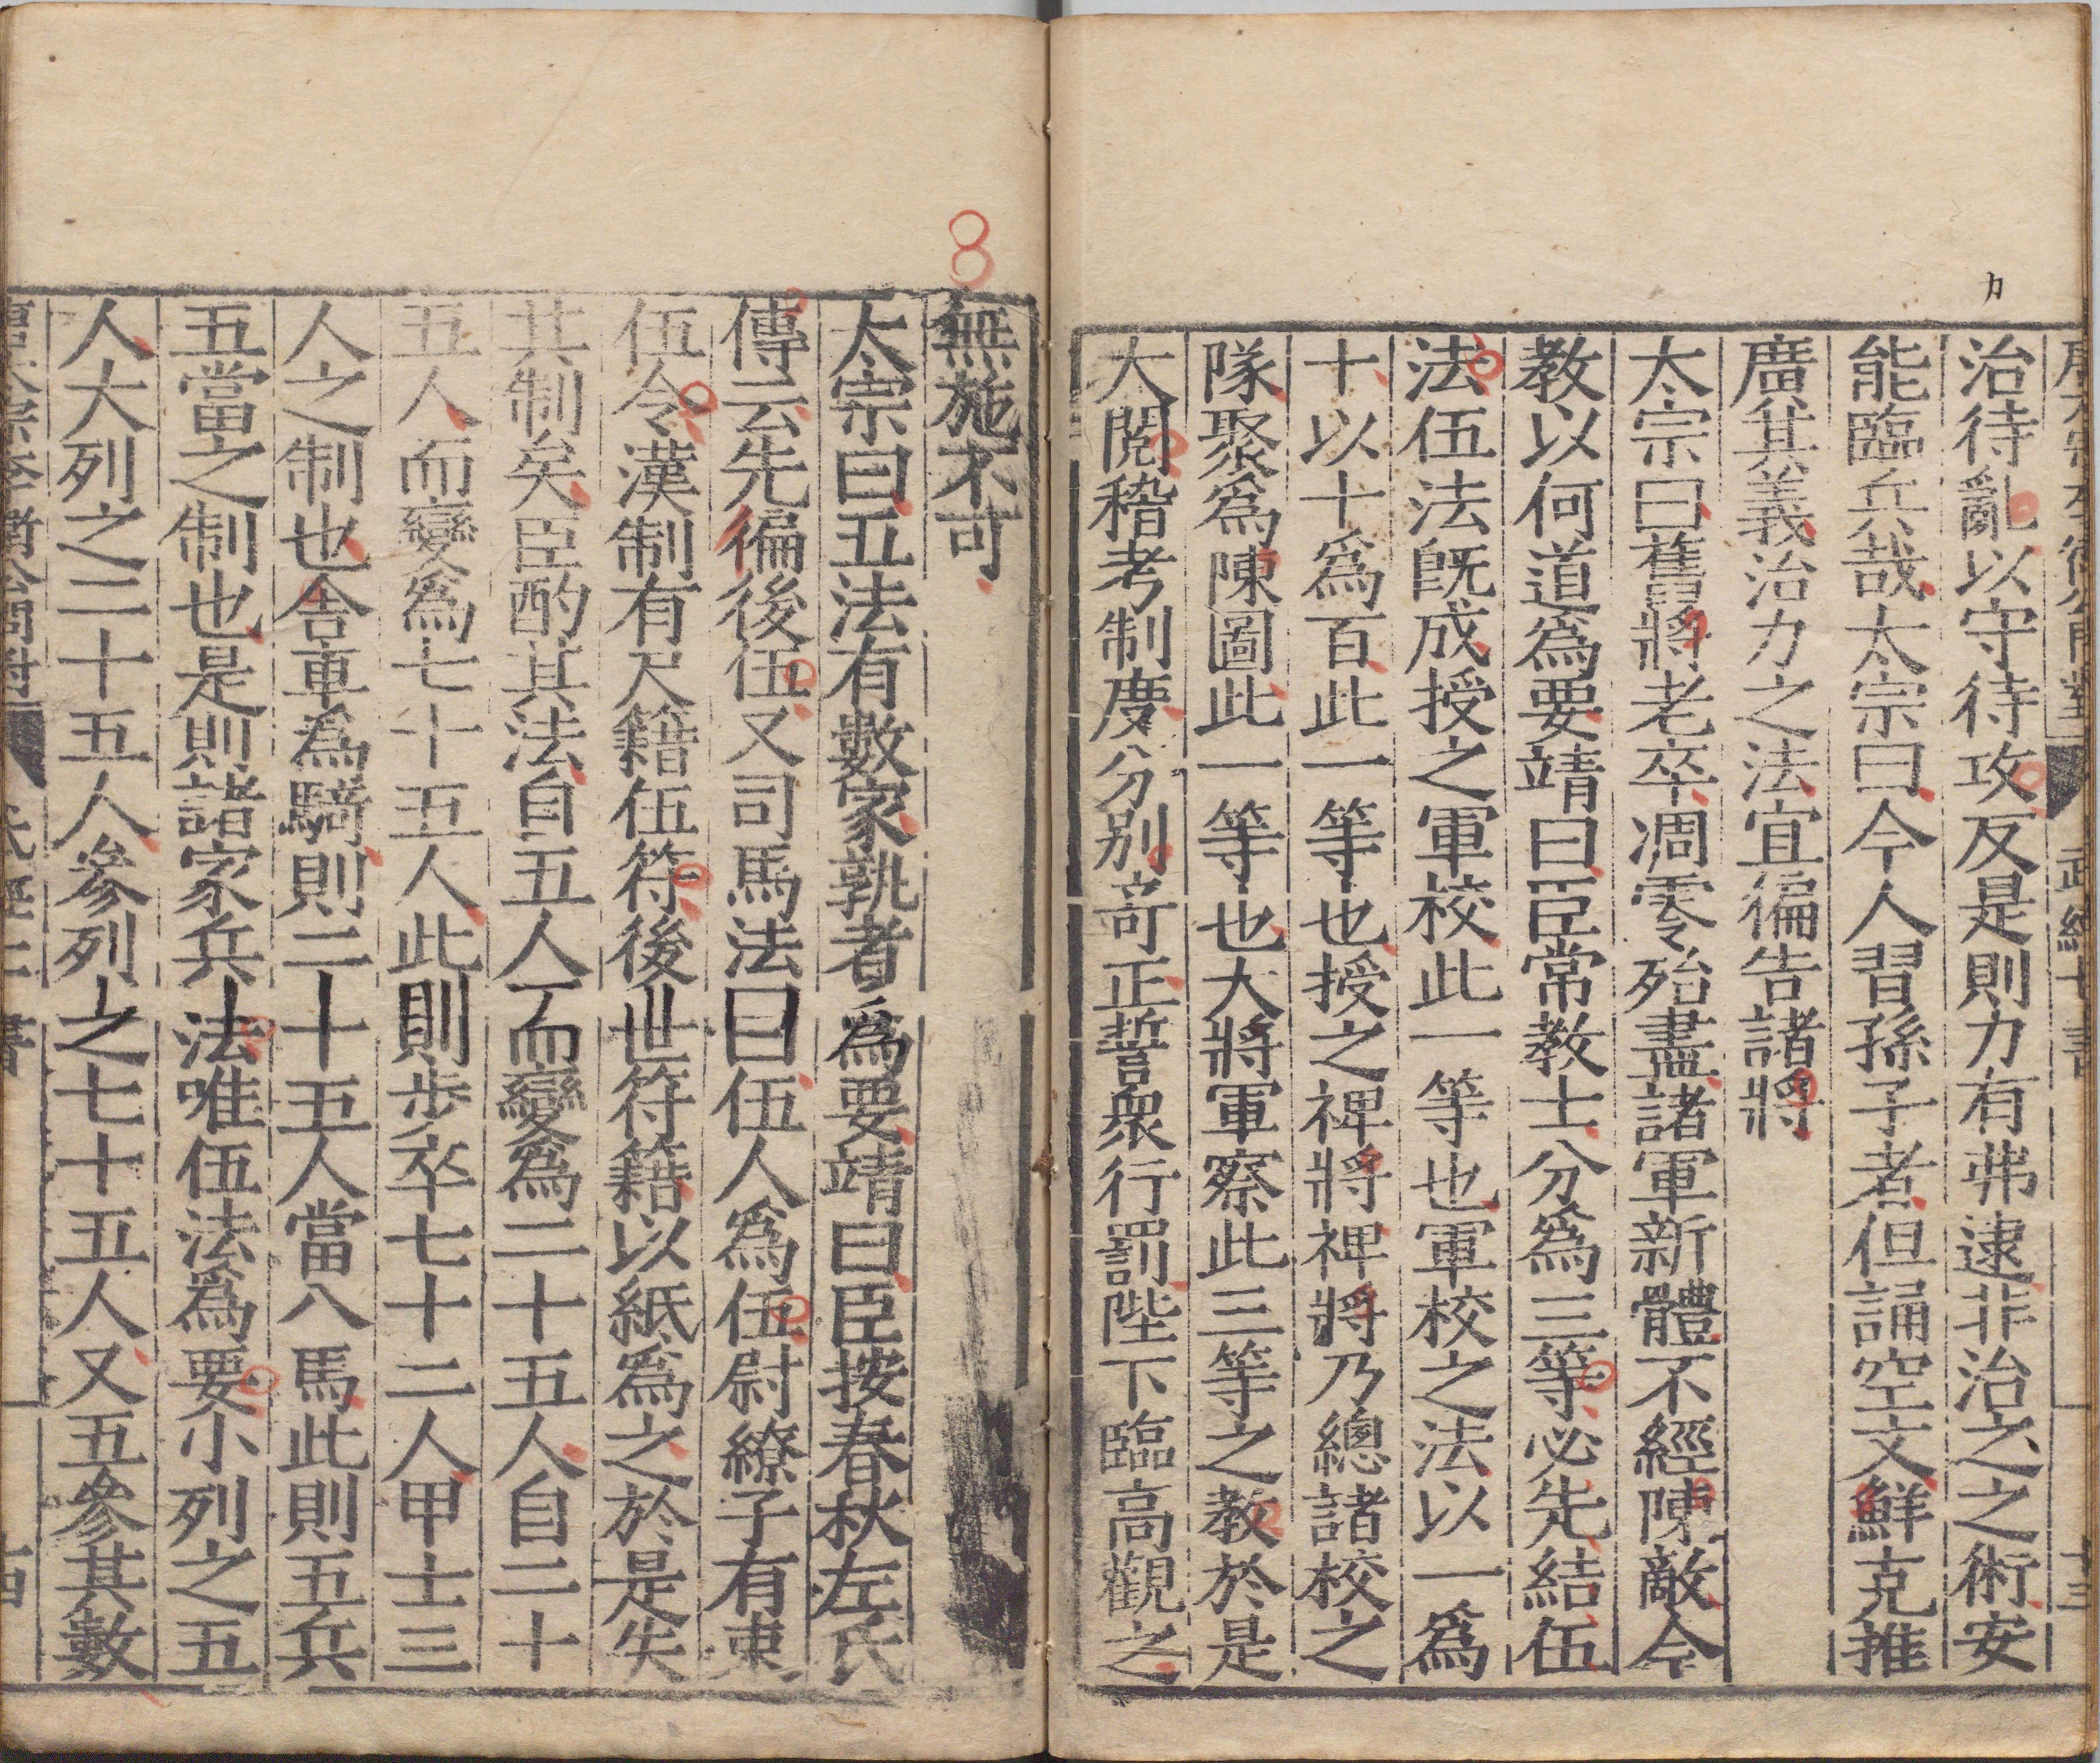 治待亂以守待攻反是則力有弗逮非治之之術安
能臨兵哉太宗曰今人習孫子者但誦空文鮮克推
廣其義治力之法宜徧告諸將
太宗曰舊將老卒凋零殆盡諸軍新體不經陳敵今
教以何道爲要靖曰臣常教士分爲三等必先結伍
法伍法旣成授之軍校此一等也軍校之法以一爲
十以十爲百此一等也授之裨將裨將乃總諸校之
隊聚爲陳圖此一等也大將軍察此三等之教於是
大閱稽考制度分別竒正誓衆行罰陛下臨高觀之
無施不可
太宗曰五法有數家孰者爲要靖曰臣按春秋左氏
傳云先偏後伍又司馬法曰伍人爲伍尉繚子有束
伍令漢制有尺籍伍符後世符籍以紙爲之於是失
其制矣臣酌其法自五人而變爲二十五人自二十
五人而變爲七十五人此則步卒七十二人甲士三
人之制也舍車爲騎則二十五人當八馬此則五兵
五當之制也是則諸家兵法唯伍法爲要小列之五
人大列之二十五人參列之七十五人又五參其數